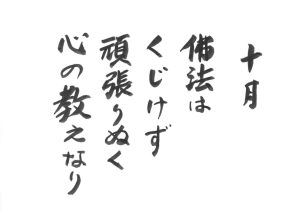 十月
佛法は
くじけず
頑張りぬく
心の教えなり